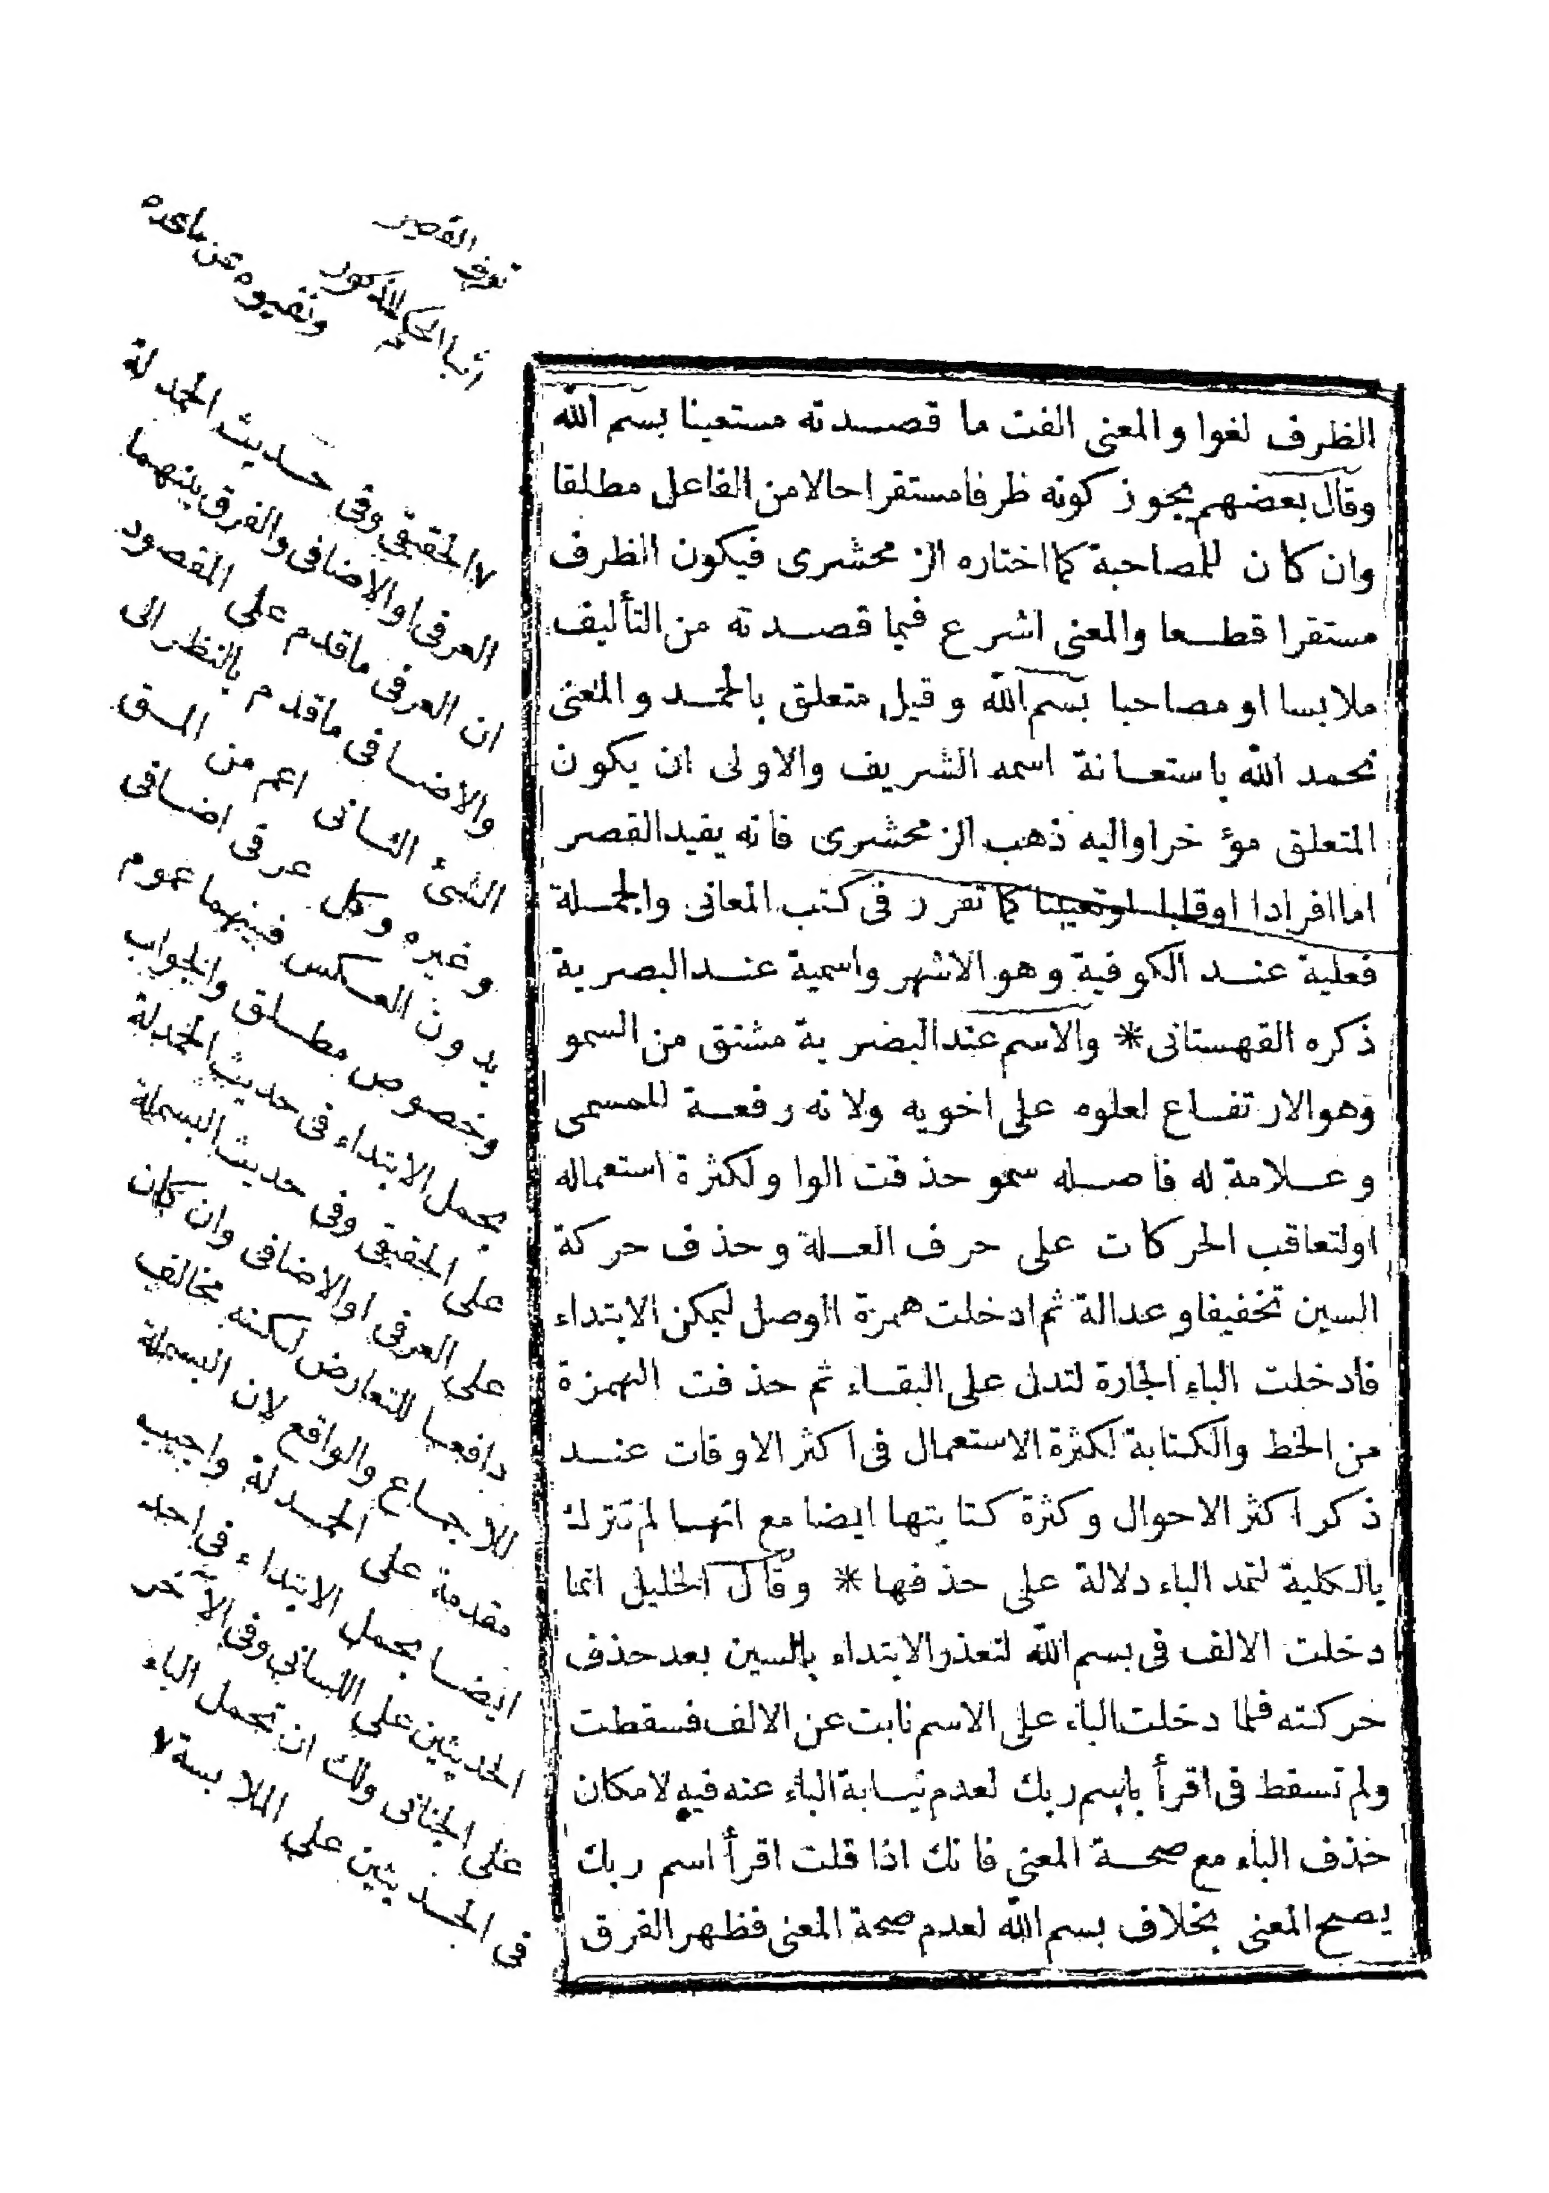 الظرف لغوا والمعنى الفت ما قصدته مستعينا بسم الله
وقال بعضهم يجوز كونه ظرفا مستقرا حالا من الفاعل مطلقا
وان كان للمصاحبة كما اختاره الزمخشرى فيكون الظرف
مستقرا قطعا والمعنى اشرع فيما قصدته من التأليف
ملابسا او مصاحبا بسم الله وقيل متعلق بالحمد والمعنى
نحمد الله باستعانة اسمه الشريف والاولى ان يكون
المتعلق مؤخرا واليه ذهب الزمخشرى فانه يفيد القصر
اما افرادا اوقلبا اوتعيينا كما تقرر فى كتب المعانى والجملة
فعلية عند الكوفية وهو الاشهر واسمية عند البصرية
ذكره القهستانى * والاسم عند البصرية مشتق من السمو
وهو الارتفاع لعلوه على اخويه ولانه رفعة للمسمى
وعلامة له فاصله سمو حذفت الواو لكثرة استعماله
اولتعاقب الحركات على حرف العلة وحذف حركة
السين تخفيفا وعدالة ثم ادخلت همزة الوصل ليمكن الابتداء
فادخلت الباء الجارة لتدل على البقاء ثم حذفت الهمزة
من الخط والكتابة لكثرة الاستعمال فى اكثر الاوقات عند
ذكر اكثر الاحوال وكثرة كتابتها ايضا مع انها لم تترك
بالكلية لتمد الباء دلالة على حذفها * وقال الخليل انما
دخلت الالف فى بسم الله لتعذر الابتداء بالسين بعد حذف
حركته فلما دخلت الباء على الاسم نابت عن الالف فسقطت
ولم تسقط فى اقرأ باسم ربك لعدم نيابة الباء عنه فيه لامكان
حذف الباء مع صحة المعنى فانك اذا قلت اقرأ اسم ربك
يصح المعنى بخلاف بسم الله لعدم صحة المعنى فظهر الفرق
تعريف القصر
اثبا الحكم للمذكور
ونفيوه عن ماعداه
الحقيقى وفى حديث الحمدلة
العرفى اوالاضافى والفرق بينهما
ان العرفى ماقدم على المقصود
والاضافى ماقدم بالنظر الى
الشئ الثانى اعم من المسق
وغيره وكل عرفى اضافى
بدون العكس فبينهما عموم
وخصوص مطلق والجواب
بحمل الابتداء فى حديث الحمدلة
على الحقيقى وفى حديث البسملة
على العرفى اوالاضافى وان كان
دافعا للتعارض لكنه مخالف
للاجماع والواقع لان البسملة
مقدمة على الحمدلة واجيب
ايضا بحمل الابتداء فى احد
الحديثين على اللسانى وفى الآخر
على الجنانى ولك ان تحمل الباء
فى الحديثين على الملابسة